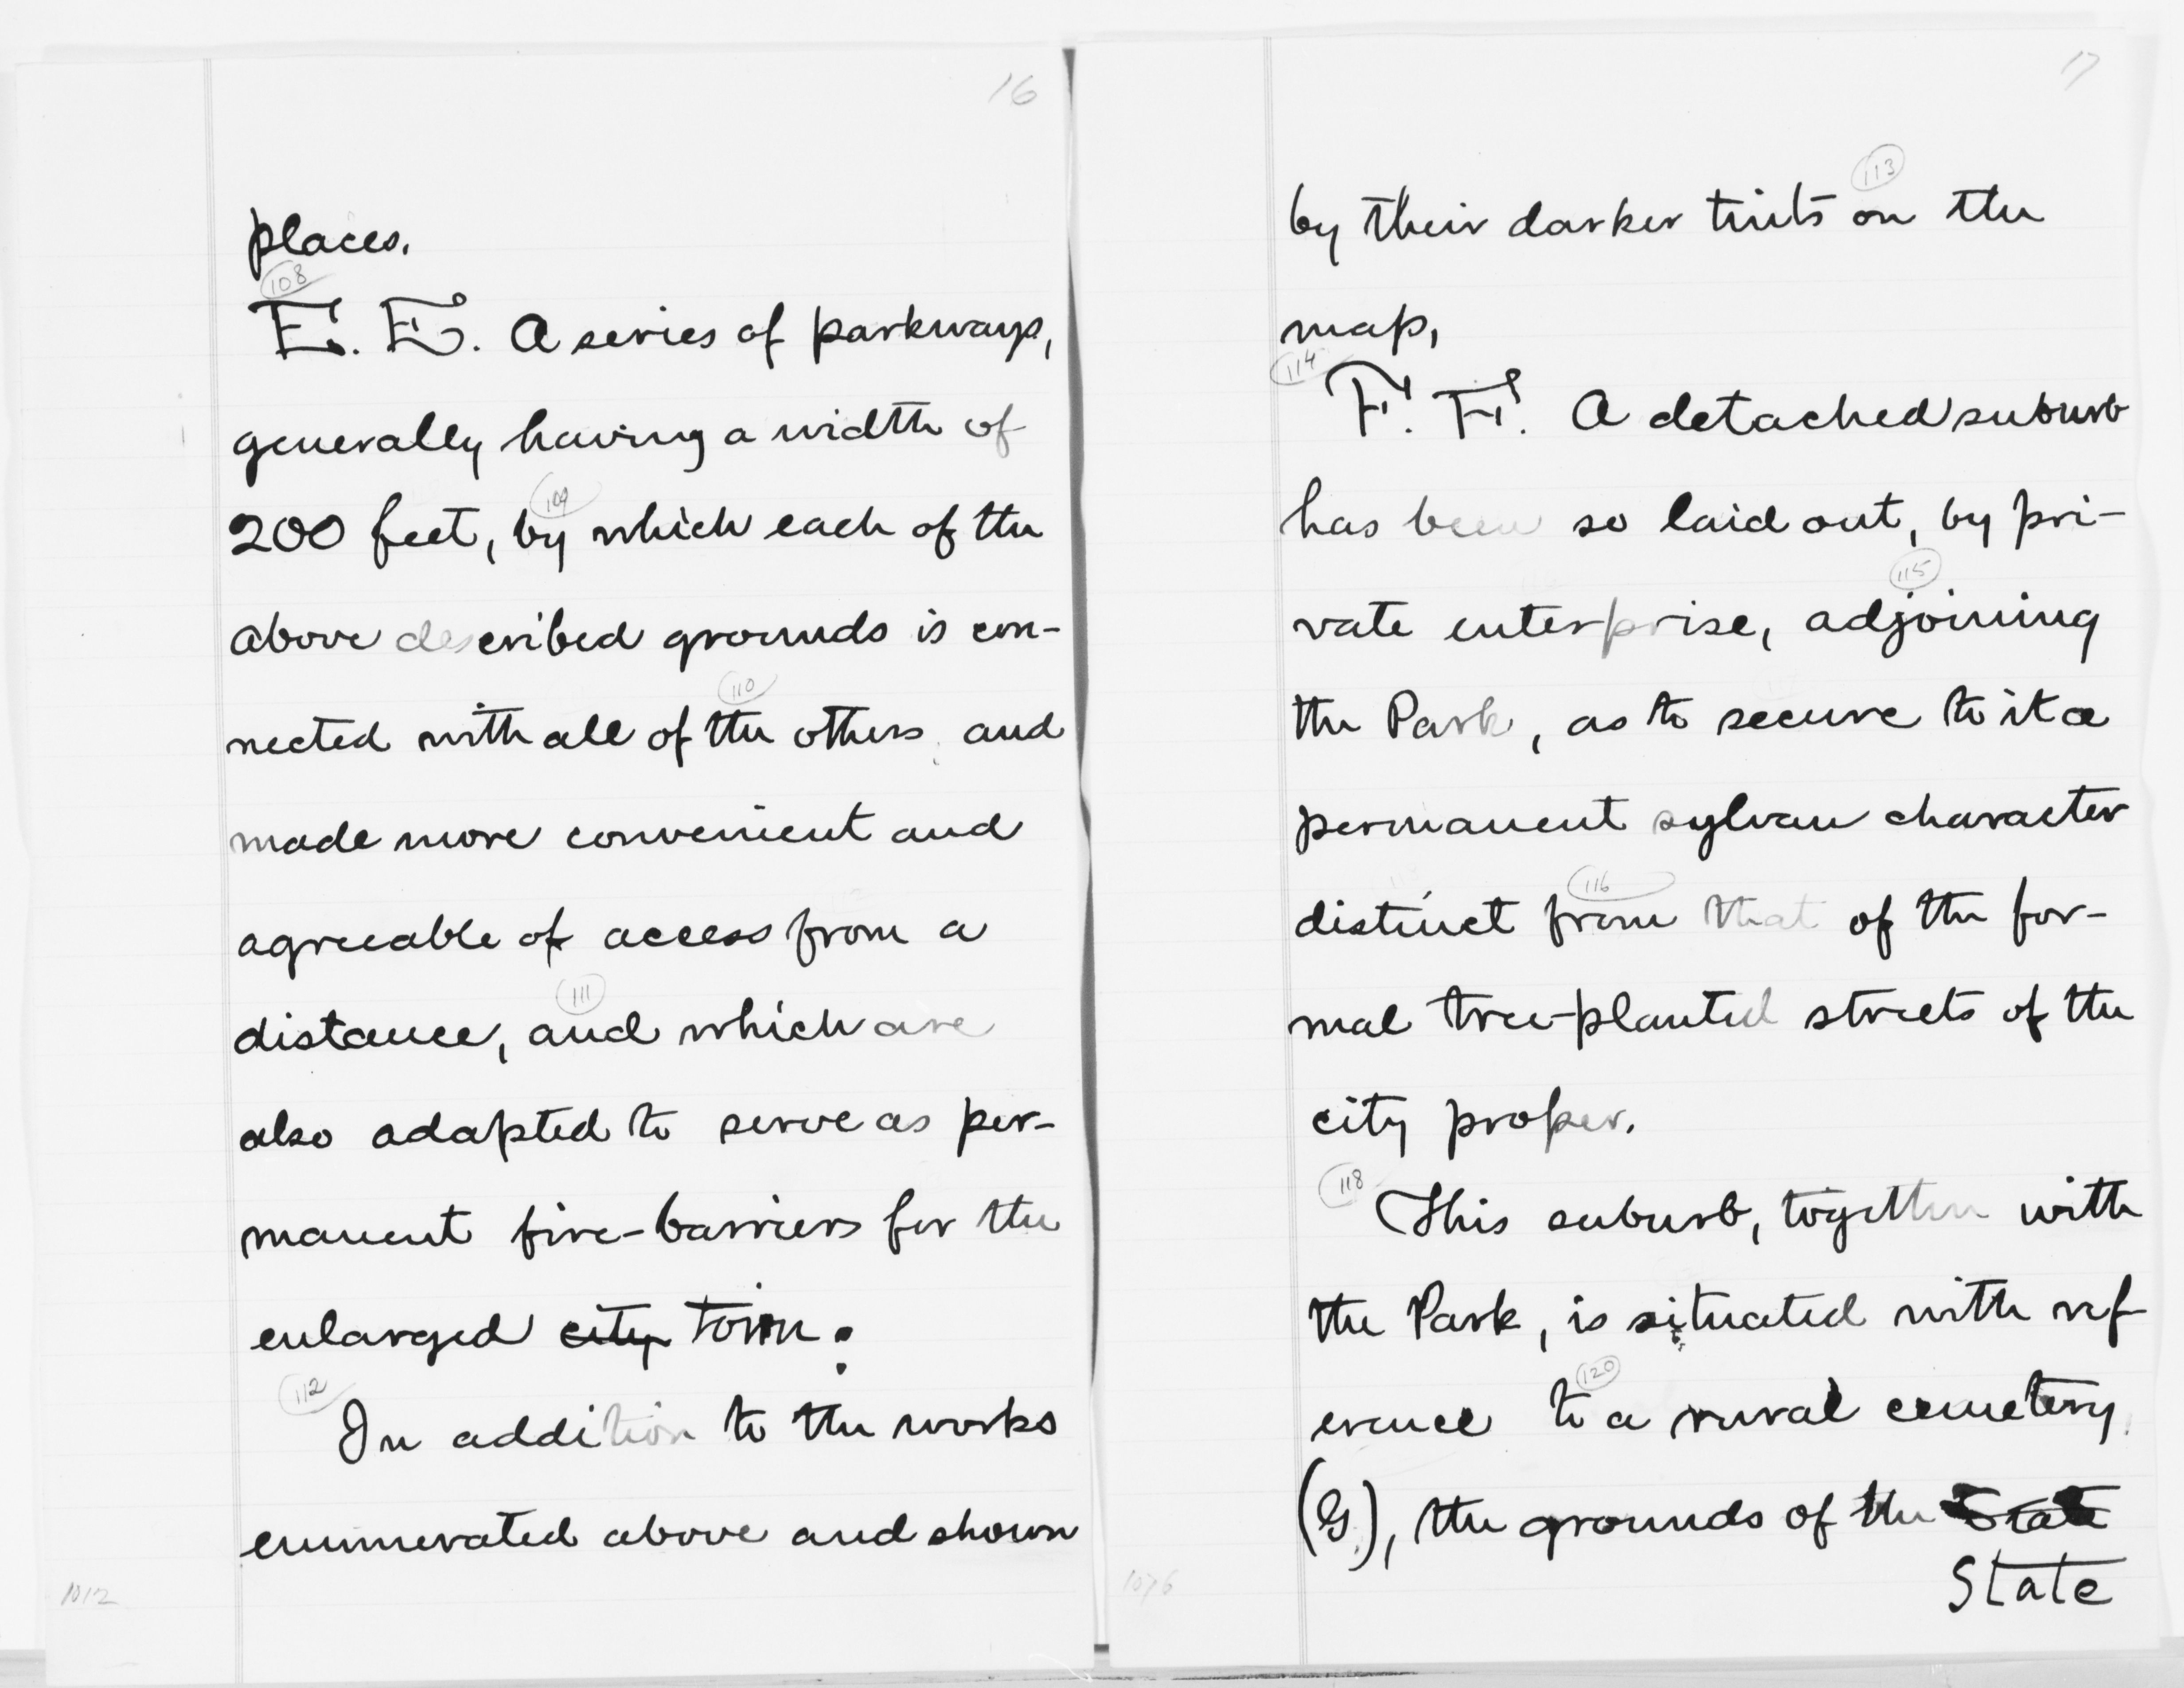 16
places.
108
E. E. A series of parkways,
generally having a width of
109
200 feet, by which each of the
above described grounds is con-
110
nected with all of the others, and
made more convenient and
agreeable of access from a
111
distance, and which are
also adapted to serve as per-
manent fire-barriers for the
enlarged city town.
112
In addition to the works
enumerated above and shown
1012
17
113
by their darker tints on the
map,
114
F. F. A detached suburb
has been so laid out, by pri-
115
vate enterprise, adjoining
the Park, as to secure to it a
permanent sylvan character
116
distinct from that of the for-
mal tree-planted streets of the
city proper.
118
This suburb, together with
the Park, is situated with ref-
120
erence to a rural cemetery
(G), the grounds of the State
State
1076